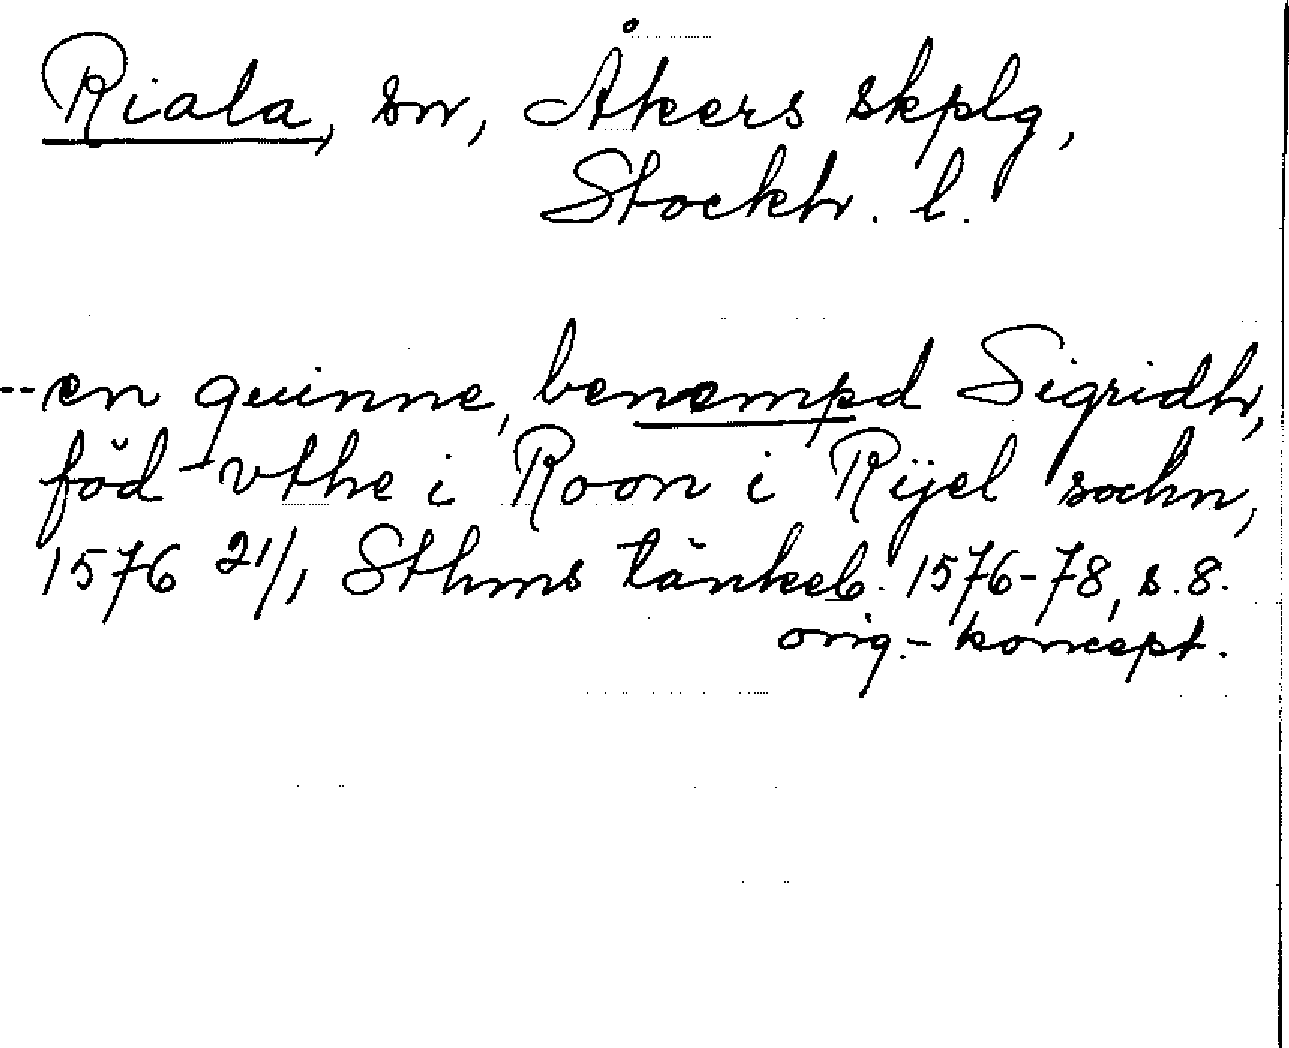 Riala, sn, Åkers skplg,
Stockh. l.
-- en quinne, benempd Sigridh,
föd vthe i Roon i Rijel sochn,
1576 21/1 Sthms tänkeb. 1576-78, s. 8.
orig.- koncept.